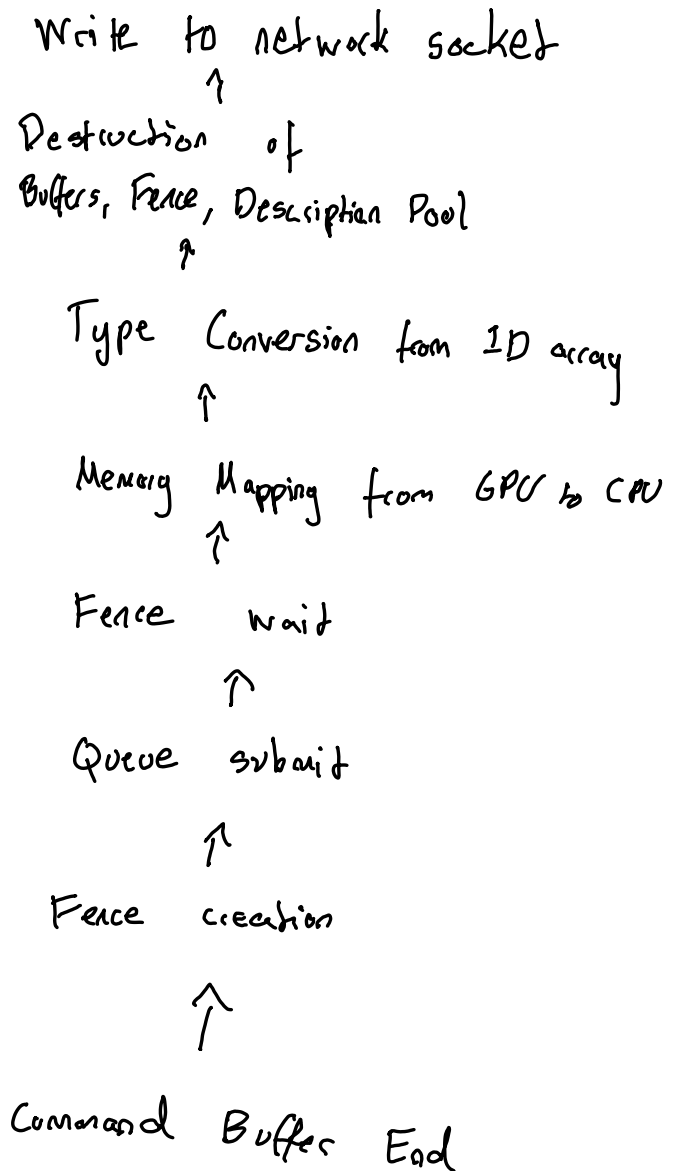 Write to network socket
↑
Destruction of
Buffers, Fence, Description Pool
↑
Type Conversion from 1D array
↑
Memory Mapping from GPU to CPU
↑
Fence wait
↑
Queue submit
↑
Fence creation
↑
Command Buffer End